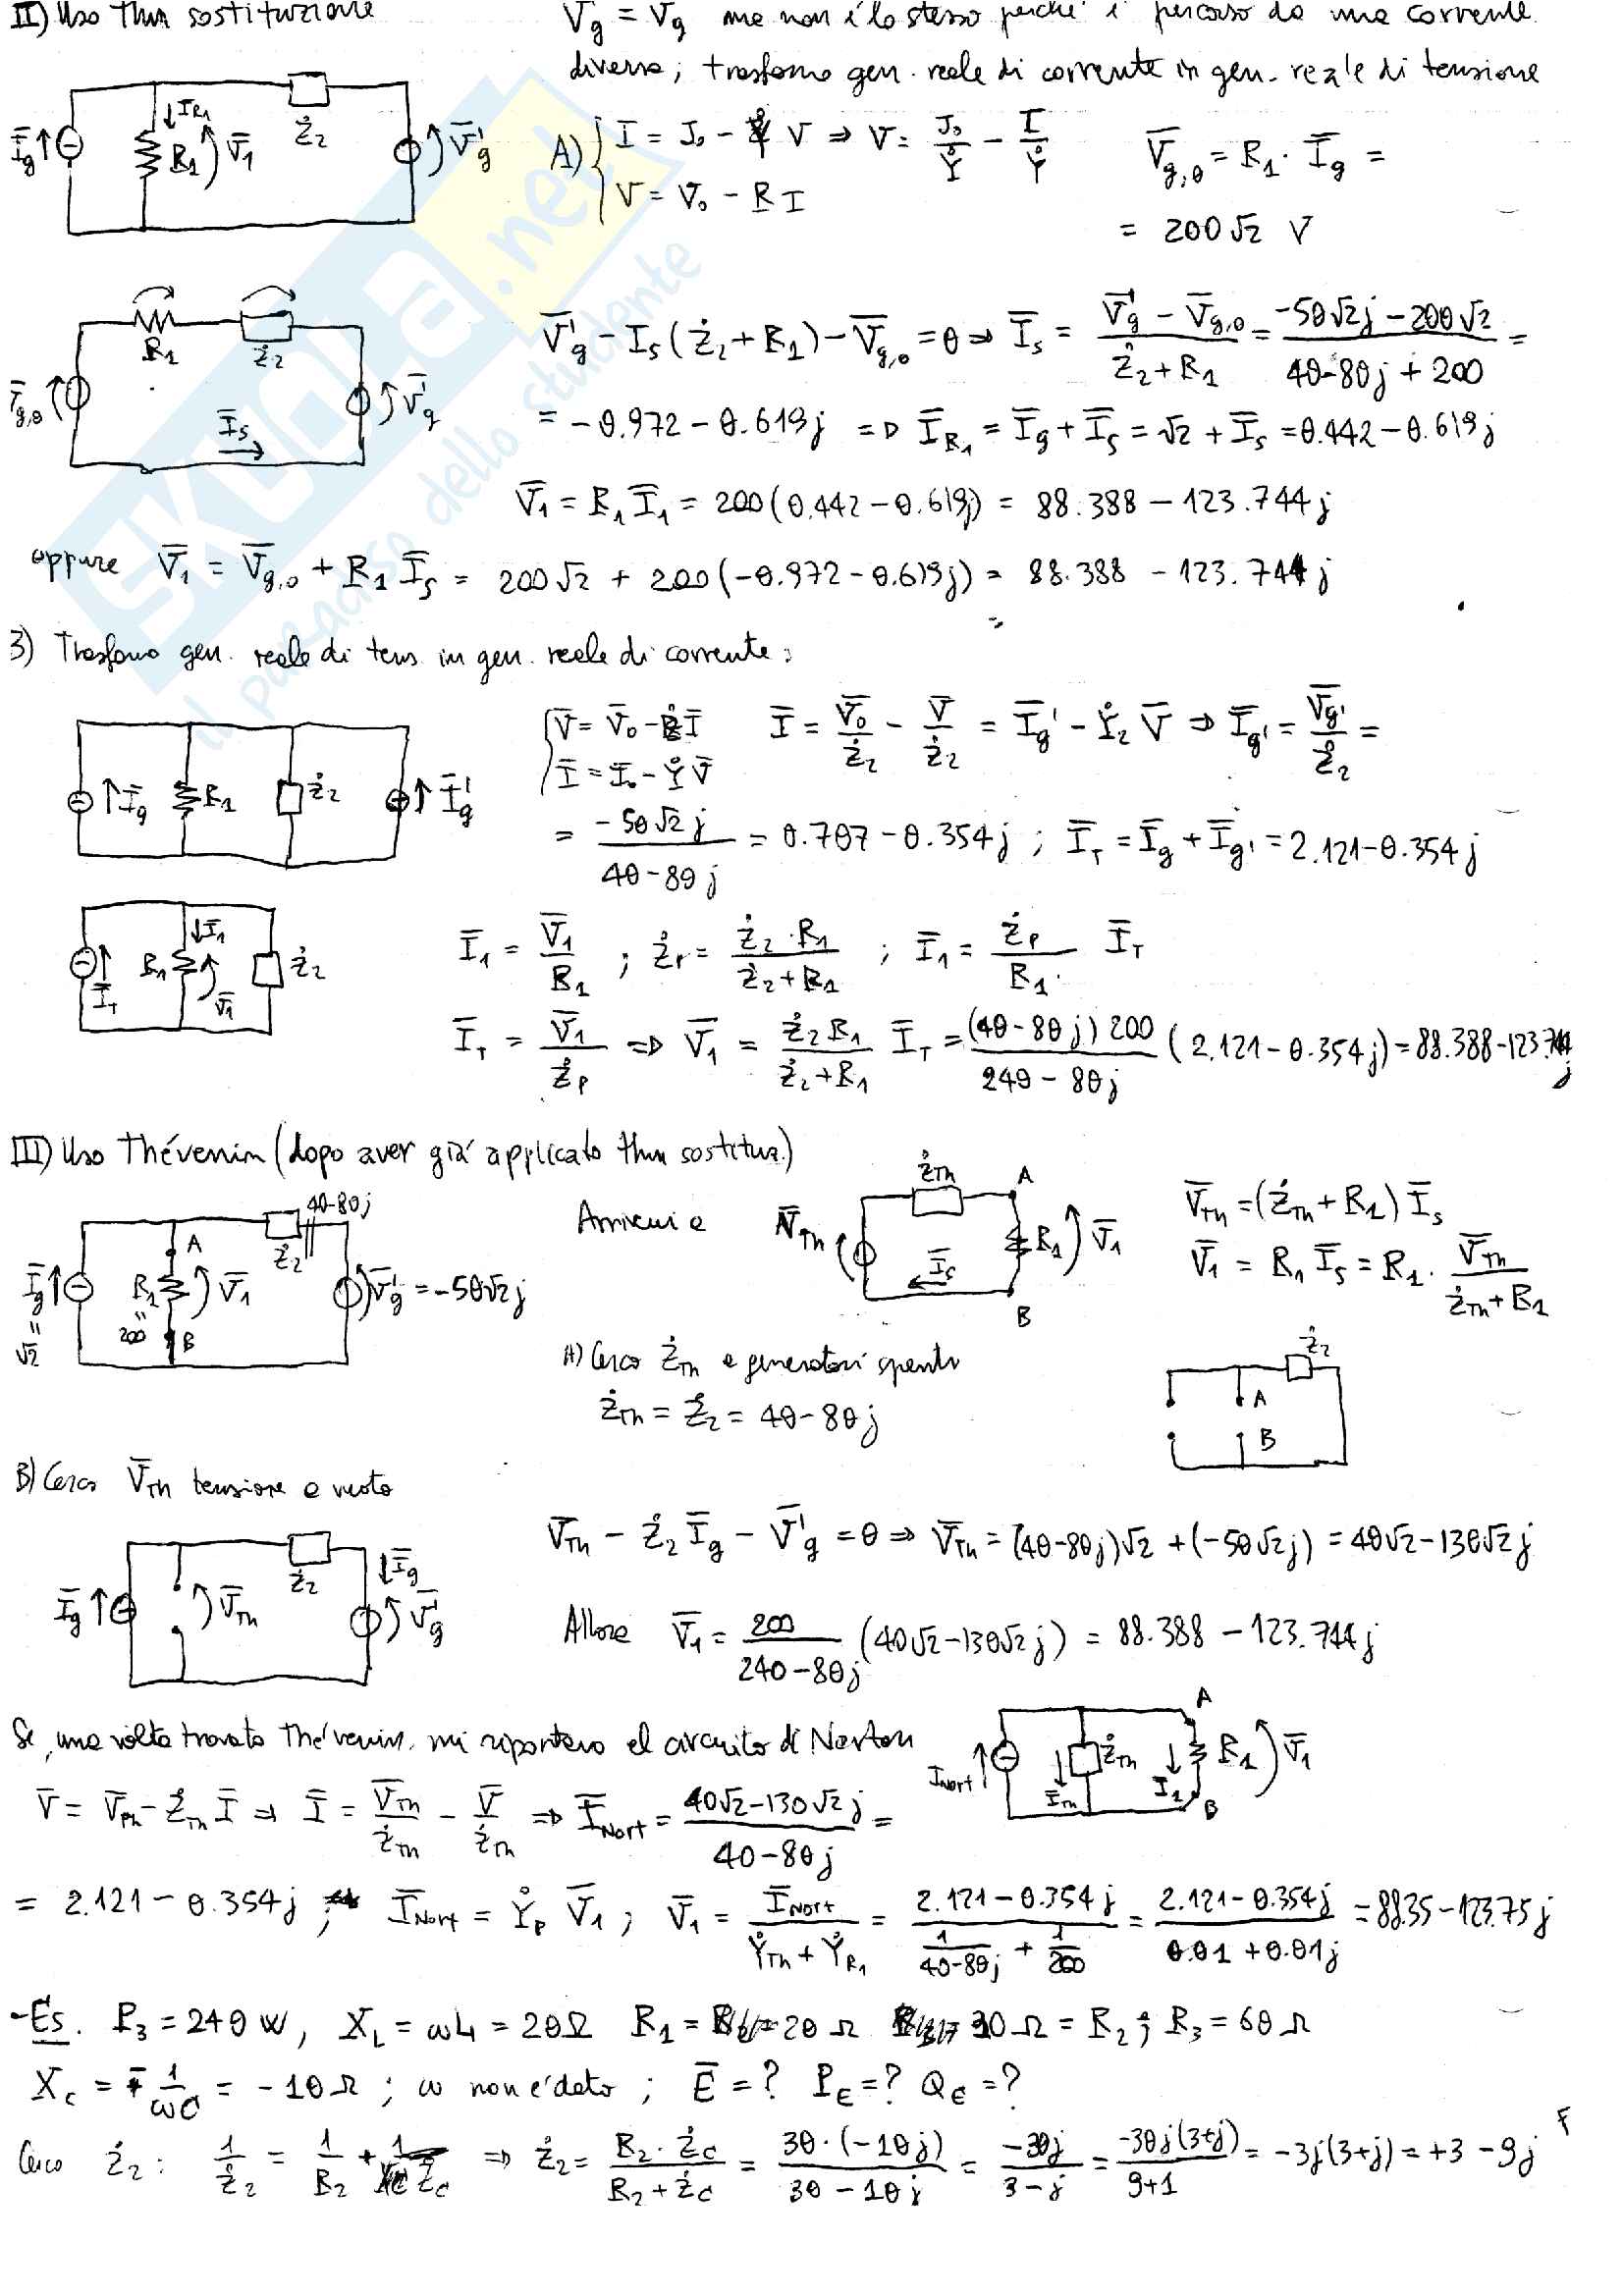 II) Uso thm sostituzione
V̄g = V̄g ma non è lo stesso perché è percorso da una corrente
diversa; trasformo gen. reale di corrente in gen. reale di tensione
Īg R1 IR1 V̄1 Ż2 V̄g'
A) { I = J₀ - Ẏ V ⇒ V = J₀/Ẏ - I/Ẏ
V = V₀ - R I
V̄g,0 = R1 · Īg =
= 200√2 V
V̄g,0 R1 Ż2 Īs V̄g'
V̄g' - Īs (Ż2 + R1) - V̄g,0 = 0 ⇒ Īs = (V̄g' - V̄g,0)/(Ż2 + R1) = (-50√2j - 200√2)/(40-80j + 200) =
= -0.972 - 0.619j => ĪR1 = Īg + Īs = √2 + Īs = 0.442 - 0.619j
V̄1 = R1 Ī1 = 200(0.442 - 0.619j) = 88.388 - 123.744j
oppure V̄1 = V̄g,0 + R1 Īs = 200√2 + 200(-0.972 - 0.619j) = 88.388 - 123.744j
3) Trasformo gen. reale di tens in gen. reale di corrente:
Īg R1 Ż2 Īg'
{ V̄ = V̄₀ - Ż Ī
Ī = Ī₀ - Ẏ V̄
Ī = V̄₀/Ż2 - V̄/Ż2 = Īg' - Ẏ2 V̄ ⇒ Īg' = V̄g'/Ż2 =
= -50√2j/(40-80j) = 0.707 - 0.354j ; ĪT = Īg + Īg' = 2.121 - 0.354j
ĪT R1 Ī1 V̄1 Ż2
Ī1 = V̄1/R1 ; ŻP = Ż2·R1/(Ż2+R1) ; Ī1 = ŻP/R1 ĪT
ĪT = V̄1/ŻP => V̄1 = Ż2 R1/(Ż2+R1) ĪT = (40-80j)200/(240-80j) (2.121 - 0.354j) = 88.388 - 123.744j
III) Uso Thévenin (dopo aver già applicato thm sostituz.)
Īg = √2 A R1 = 200 B V̄1 Ż2 40-80j V̄g' = -50√2j
Arrivi a V̄Th ŻTh A R1 V̄1 Īs B
V̄Th = (ŻTh + R1) Īs
V̄1 = R1 Īs = R1 · V̄Th/(ŻTh + R1)
A) Cerco ŻTh a generatori spenti
ŻTh = Ż2 = 40-80j
A B Ż2
B) Cerco V̄Th tensione a vuoto
Īg V̄Th Ż2 Īg V̄g'
V̄Th - Ż2 Īg - V̄'g = 0 ⇒ V̄Th = (40-80j)√2 + (-50√2j) = 40√2 - 130√2j
Allora V̄1 = 200/(240-80j) (40√2 - 130√2j) = 88.388 - 123.744j
Se, una volta trovato Thévenin, mi riportavo al circuito di Norton
INort ŻTh ĪTh Ī1 A R1 V̄1 B
V̄ = V̄Th - ŻTh Ī ⇒ Ī = V̄Th/ŻTh - V̄/ŻTh => ĪNort = (40√2 - 130√2j)/(40-80j) =
= 2.121 - 0.354j ; ĪNort = ẎP V̄1 ; V̄1 = ĪNort/(ẎTh + ẎR1) = (2.121 - 0.354j)/(1/(40-80j) + 1/200) = (2.121 - 0.354j)/(0.01 + 0.01j) = 88.35 - 123.75j
-Es. P3 = 240 W, XL = ωL = 20Ω R1 = 20 Ω 30 Ω = R2 ; R3 = 60 Ω
XC = - 1/ωC = -10Ω ; ω non è dato ; Ē = ? PE = ? QE = ?
Cerco Ż2 : 1/Ż2 = 1/R2 + 1/ŻC ⇒ Ż2 = R2·ŻC/(R2+ŻC) = 30·(-10j)/(30-10j) = -30j/(3-j) = -30j(3+j)/(9+1) = -3j(3+j) = +3 - 9j
SKUOLA.net
il paradiso dello studente